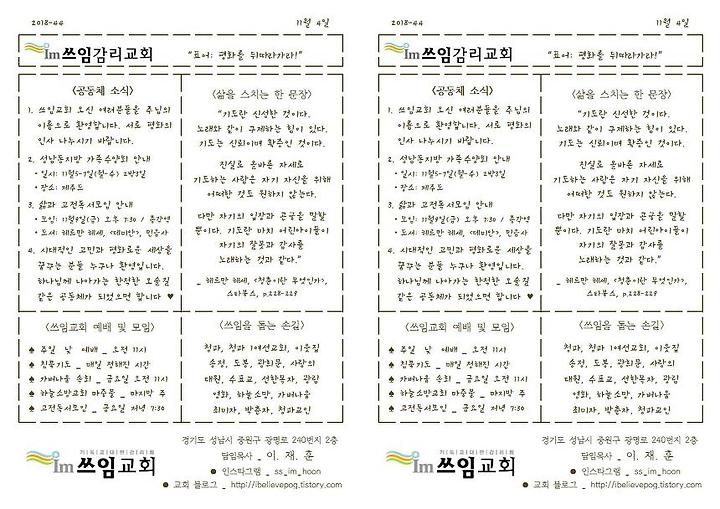 2018-44
11월 4일
Im 쓰임감리교회
"표어: 평화를 뒤따라가라!"
<공동체 소식>
1. 쓰임교회 오신 여러분들을 주님의
이름으로 환영합니다. 서로 평화의
인사 나누시기 바랍니다.
2. 성남동지방 가족수양회 안내
• 일시: 11월5-7일(월-수) 2박3일
• 장소: 제주도
3. 삶과 고전독서모임 안내
• 모임: 11월9일(금) 오후 7:30 / 종강연
• 도서: 헤르만 헤세, <데미안>, 민음사
4. 시대적인 고민과 평화로운 세상을
꿈꾸는 분들 누구나 환영입니다.
하나님께 나아가는 한적한 오솔길
같은 공동체가 되었으면 합니다 ♥
<삶을 스치는 한 문장>
"기도란 신성한 것이다.
노래와 같이 구제하는 힘이 있다.
기도는 신뢰이며 확증인 것이다.
진실로 올바른 자세로
기도하는 사람은 자기 자신을 위해
어떠한 것도 원하지 않는다.
다만 자기의 입장과 곤궁을 말할
뿐이다. 기도란 마치 어린아이들이
자기의 잘못과 감사를
노래하는 것과 같다."
_ 헤르만 헤세, <청춘이란 무엇인가>,
스타북스, p.228-229
<쓰임교회 예배 및 모임>
♠ 주일 낮 예배 _ 오전 11시
♠ 친묵기도 _ 매일 정해진 시간
♠ 가버나움 순회 _ 금요일 오전 11시
♠ 하늘소망교회 마중물 _ 마지막 주
♠ 고전독서모임 _ 금요일 저녁 7:30
<쓰임을 돕는 손길>
청파, 청파 1여선교회, 이웃집
송정, 도봉, 광희문, 사랑의
대원, 수표교, 선한목자, 광림
영화, 하늘소망, 가버나움
최미자, 박춘자, 청파교인
기독교대한감리회
Im 쓰임교회
경기도 성남시 중원구 광명로 240번지 2층
담임목사 _ 이 재 훈
● 인스타그램 _ ss_im_hoon
● 교회 블로그 _ http://ibelievepog.tistory.com
2018-44
11월 4일
Im 쓰임감리교회
"표어: 평화를 뒤따라가라!"
<공동체 소식>
1. 쓰임교회 오신 여러분들을 주님의
이름으로 환영합니다. 서로 평화의
인사 나누시기 바랍니다.
2. 성남동지방 가족수양회 안내
• 일시: 11월5-7일(월-수) 2박3일
• 장소: 제주도
3. 삶과 고전독서모임 안내
• 모임: 11월9일(금) 오후 7:30 / 종강연
• 도서: 헤르만 헤세, <데미안>, 민음사
4. 시대적인 고민과 평화로운 세상을
꿈꾸는 분들 누구나 환영입니다.
하나님께 나아가는 한적한 오솔길
같은 공동체가 되었으면 합니다 ♥
<삶을 스치는 한 문장>
"기도란 신성한 것이다.
노래와 같이 구제하는 힘이 있다.
기도는 신뢰이며 확증인 것이다.
진실로 올바른 자세로
기도하는 사람은 자기 자신을 위해
어떠한 것도 원하지 않는다.
다만 자기의 입장과 곤궁을 말할
뿐이다. 기도란 마치 어린아이들이
자기의 잘못과 감사를
노래하는 것과 같다."
_ 헤르만 헤세, <청춘이란 무엇인가>,
스타북스, p.228-229
<쓰임교회 예배 및 모임>
♠ 주일 낮 예배 _ 오전 11시
♠ 친묵기도 _ 매일 정해진 시간
♠ 가버나움 순회 _ 금요일 오전 11시
♠ 하늘소망교회 마중물 _ 마지막 주
♠ 고전독서모임 _ 금요일 저녁 7:30
<쓰임을 돕는 손길>
청파, 청파 1여선교회, 이웃집
송정, 도봉, 광희문, 사랑의
대원, 수표교, 선한목자, 광림
영화, 하늘소망, 가버나움
최미자, 박춘자, 청파교인
기독교대한감리회
Im 쓰임교회
경기도 성남시 중원구 광명로 240번지 2층
담임목사 _ 이 재 훈
● 인스타그램 _ ss_im_hoon
● 교회 블로그 _ http://ibelievepog.tistory.com